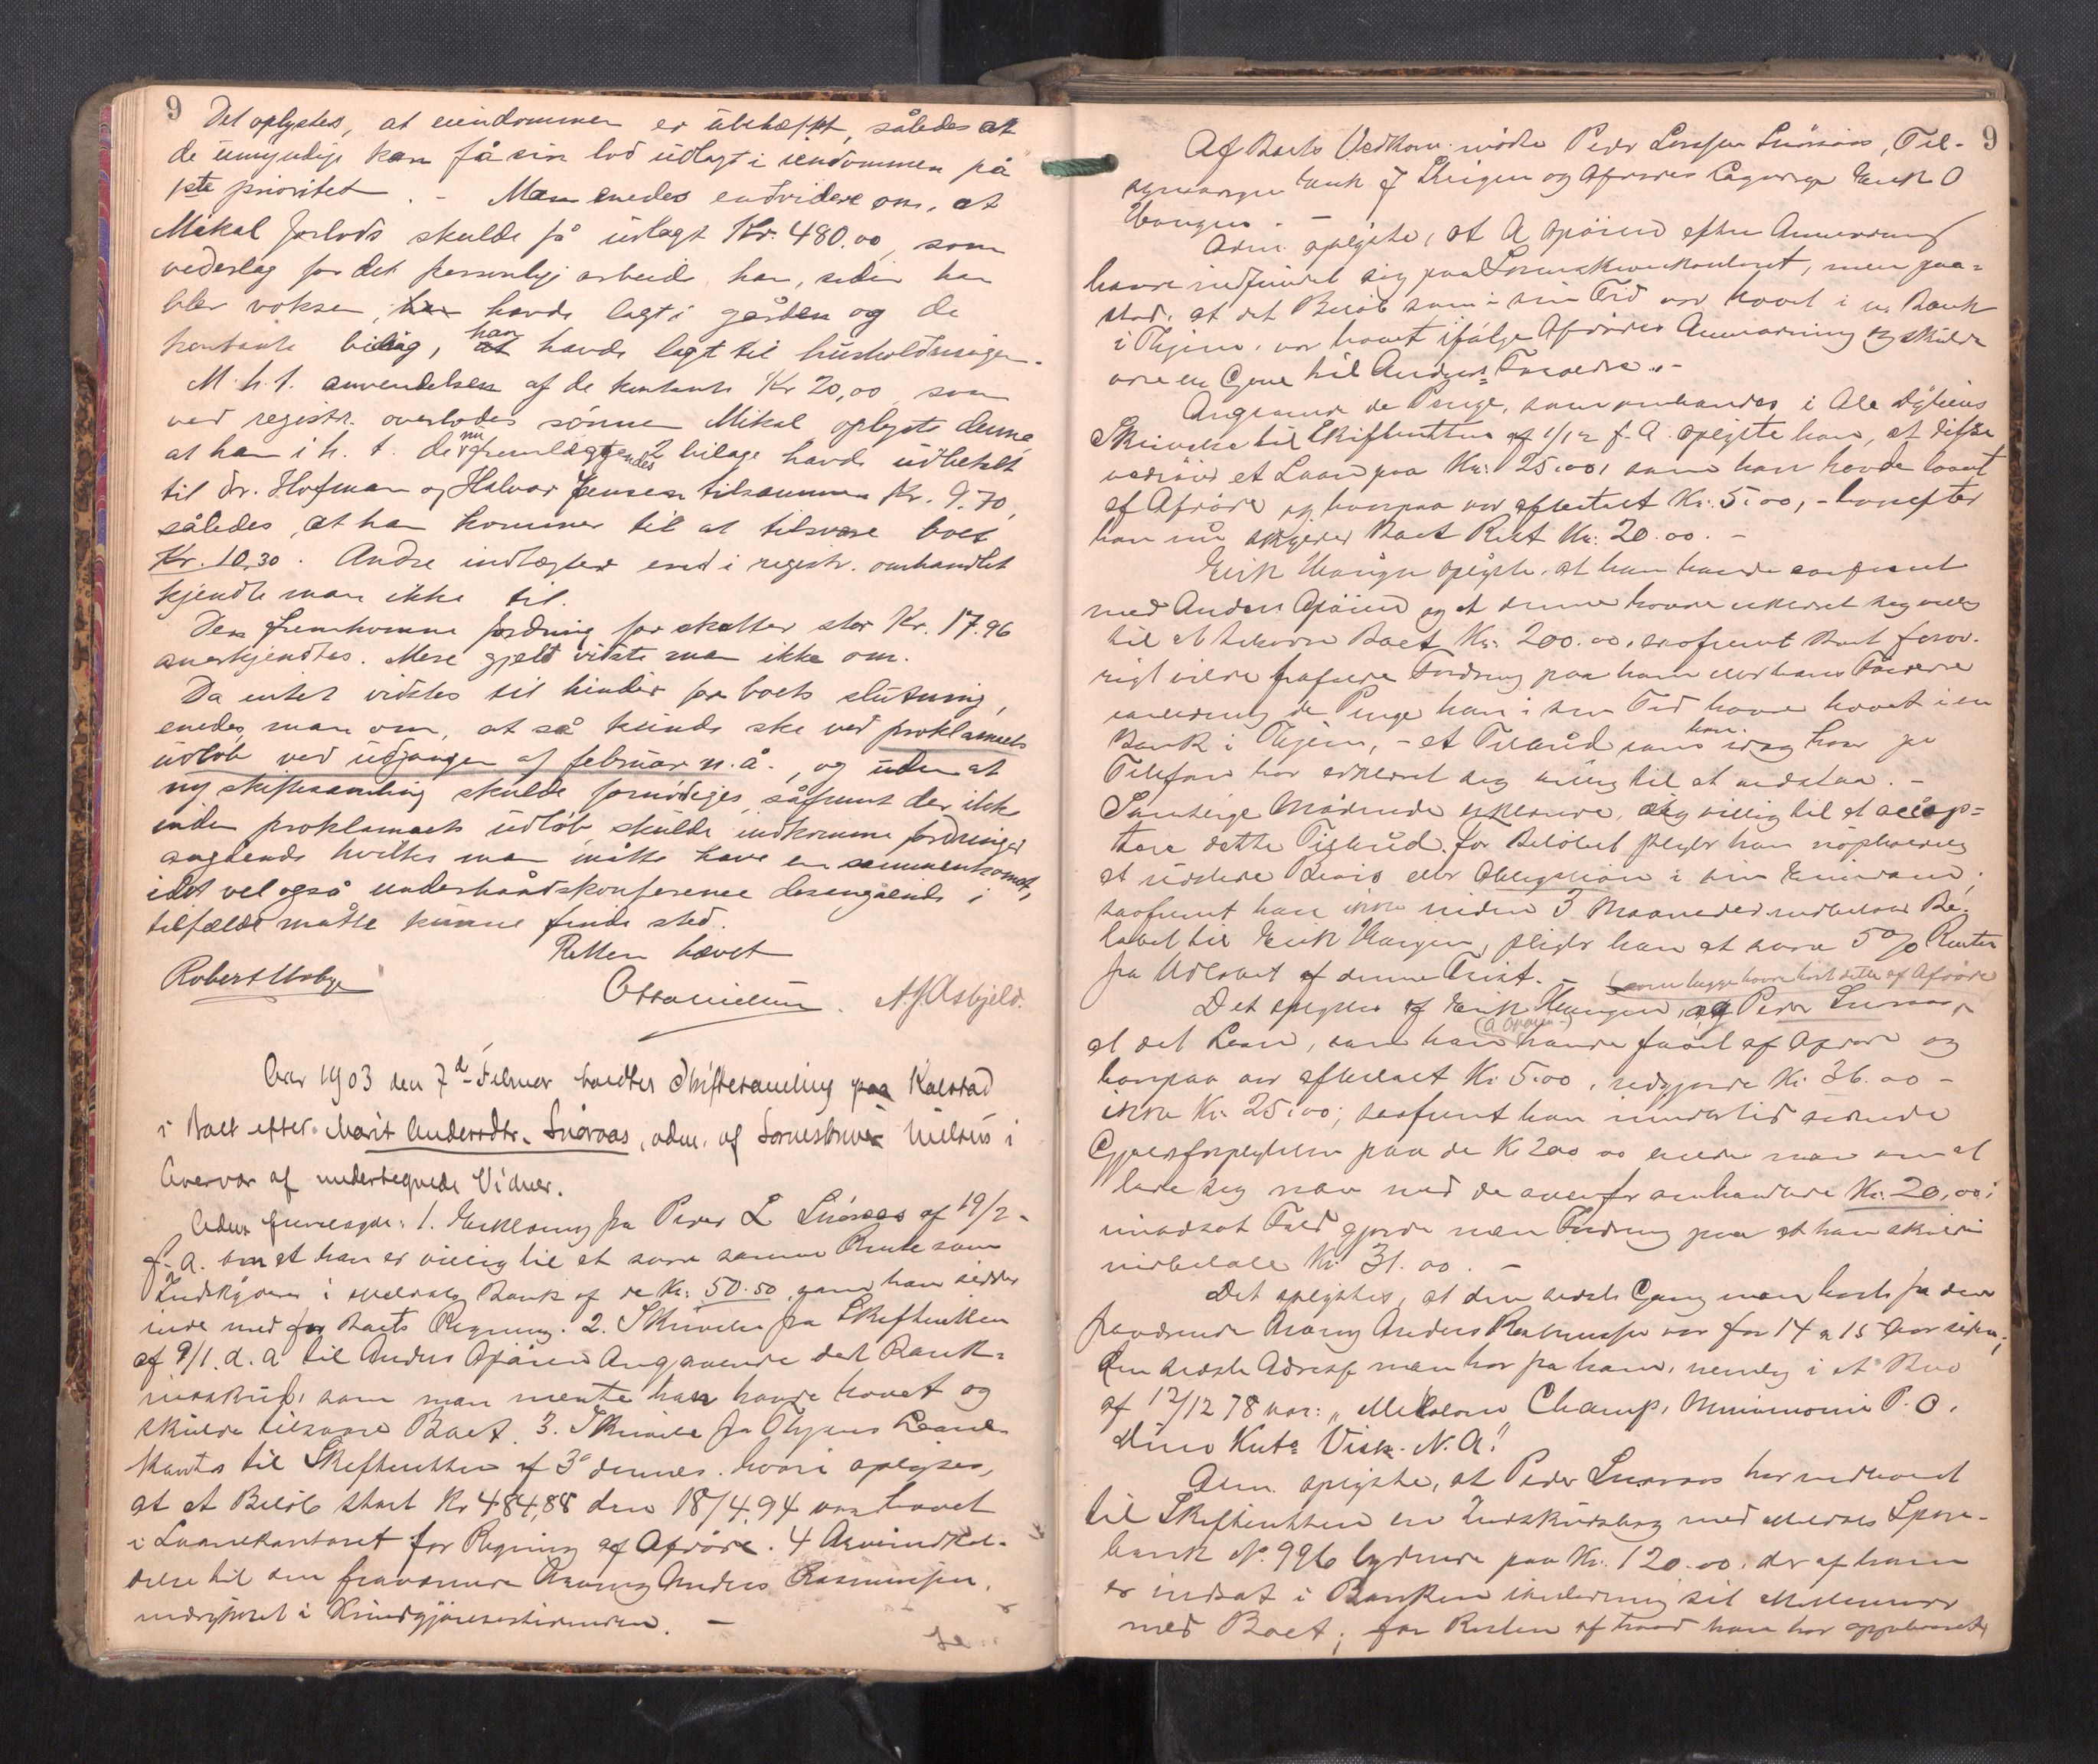 9
Det oplystes, at eiendommen er übehæftet, således at
de ümyndige kan få sin lod üdlagt i eiendommen på
1ste prioritet. - Man enedes endvidere om, at
Mikal forlods skulde få üdlagt Kr. 480.00, som
vederlag for det personlige arbeide han, siden han
blev voksen, havde lagt i gården og de
kontante bidrag, han havde lagt til hüsholdningen.
M. h. t. anvendelsen af de kontante Kr 20,00, som
ved registr. overlodes sönnen Mikal oplyste denne,
at han i h. t. de nu fremlæggendes 2 bilage havde üdbetalt
til Dr. Hofman og Halvor Jensen tilsammen Kr. 9.70,
således at han kommer til at tilsvare boet
Kr. 10,30. Andre indtægter end i registr. omhandlet
kjendte man ikke til.
Den fremkomne fordring for skatter stor Kr. 17.96
anerkjendtes. Mere gjeld vidste man ikke om.
Da intet vidstes til hinder for boets slütning,
enedes man om, at så künde ske ved proklamaets
üdløb ved üdgangen af februar n. å., og üden at
ny skiftesamling skulde fornödiges, såfremt der ikke
inden proklamaets üdløb skülde indkomme fordringer
angående hvilke man måtte have en sammenkomst,
idet vel også underhåndskonference desangående i
tilfælde måtte künne finde sted.
Retten hævet
Robert Usbye
Otto Nielsen A. J. Asbjeld.
Aar 1903 den 7de Februar holdtes Skiftesamling paa Kalstad
i Boet efter Marit Andersdtr. Snöraas, adm. af Sorenskriver Nielsen i
Overvær af undertegnede Vidner.
Adm fremlagde: 1. Erklæring fra Peder L Snöraas af 19/2
f. A. om at han er villig til at svare samme Rente som
Indskydere i Meldals Bank af de Kr. 50.50 som han sidder
inde med for Boets Regning. 2. Skrivelse fra Skifteretten
af 9/1. d. A til Anders Apöien Angaaende det Bank-
indskud, som man mente han havde hævet og
skulde tilsvare Boet. 3. Skrivelse fra Thjems Laane-
kontor til Skifteretten af 3de dennes, hvori oplyses,
at et Belöb stort Kr 484,88 den 18/4.94 var hævet
i Laanekontoret for Regning af Afdöde. 4 Arveindkal-
delse til den fraværende Arving Anders Rasmussen,
indrykket i Kundgjörelsestidenden. -
9
Af Boets Vedkom. mödte Peder Larssen Snöraas, Til-
synsværge Erik J Uvingen og Afdödes Lagværge Erik O
Adm. oplyste, at A Apöien efter Anmodning
havde indfundet sig paa Sorenskriverkontoret, men paa-
stod, at det Belöb som i sin Tid var hævet i en Bank
i Thjem, var hævet ifölge Afdödes Anmodning og skulde
være en Gave til Anders' Forældre. -
Angaaende de Penge, som omhandles i Ole
Skrivelse til Skifteretten af 1/12 f. A. oplyste han, at disse
vedrörer et Laan paa Kr. 25.00, som han havde laant
af Afdöde og hvorpaa var afbetalt Kr. 5.00, - hvorefter
han nu skylder Boet Rest Kr. 20.00. -
oplyste, at han havde konfereret
med Anders Apöien og at denne havde erklæret sig villig
til at Boet Kr. 200.00, saafremt Boet foröv-
rigt vilde frafalde Fordring paa ham eller hans Forældre
de Penge han i sin Tid havde hævet i en
Bank i Thjem, - et Tilbud som han idag har pr
Telefon har erklæret sig villig til at vedstaa. -
Samtlige Mödende erklærede sig villig til at accep-
tere dette Tilbud. For Belöbet pligter han
at udstede Bevis eller Obligation i sin Eiendom;
saafremt han ikke inden 3 Maaneder indbetaler Be-
löbet til Erik, pligter han at svare 5 % Renter
fra Udlöbet af denne Frist. - som begge havde hört dette af Afdöde
Det oplystes af Erik og Peder Snöraas,
at det Laan, som han (A Apöien) havde faaet af Afdöde og
hvorpaa var afbetalt Kr 5.00, udgjorde Kr. 36.00 -
ikke Kr. 25.00; saafremt han imidlertid
paa de Kr 200.00 enedes man om at
lade sig nöie med de ovenfor omhandlede Kr. 20,00;
imodsat Fald gjorde man Fordring paa at han skulde
indbetale Kr 31.00. -
Det oplystes, at den sidste Gang man hörte fra den
fraværende Arving Anders Rasmussen var for 14 a 15 Aar siden;
den sidste Adresse man har fra ham, nemlig i et Brev
af 12/12 78 var: „ Champ, P. O,
N. A."
Adm. oplyste, at Peder Snöraas har indleveret
til Skifteretten en Indskudsbog med Meldals Spare-
bank No. 996 lydende paa Kr. 120.00, der af ham
er indsat i Banken i Anledning sit Mellemvær
med Boet; for Resten af hvad han har oppebaaret